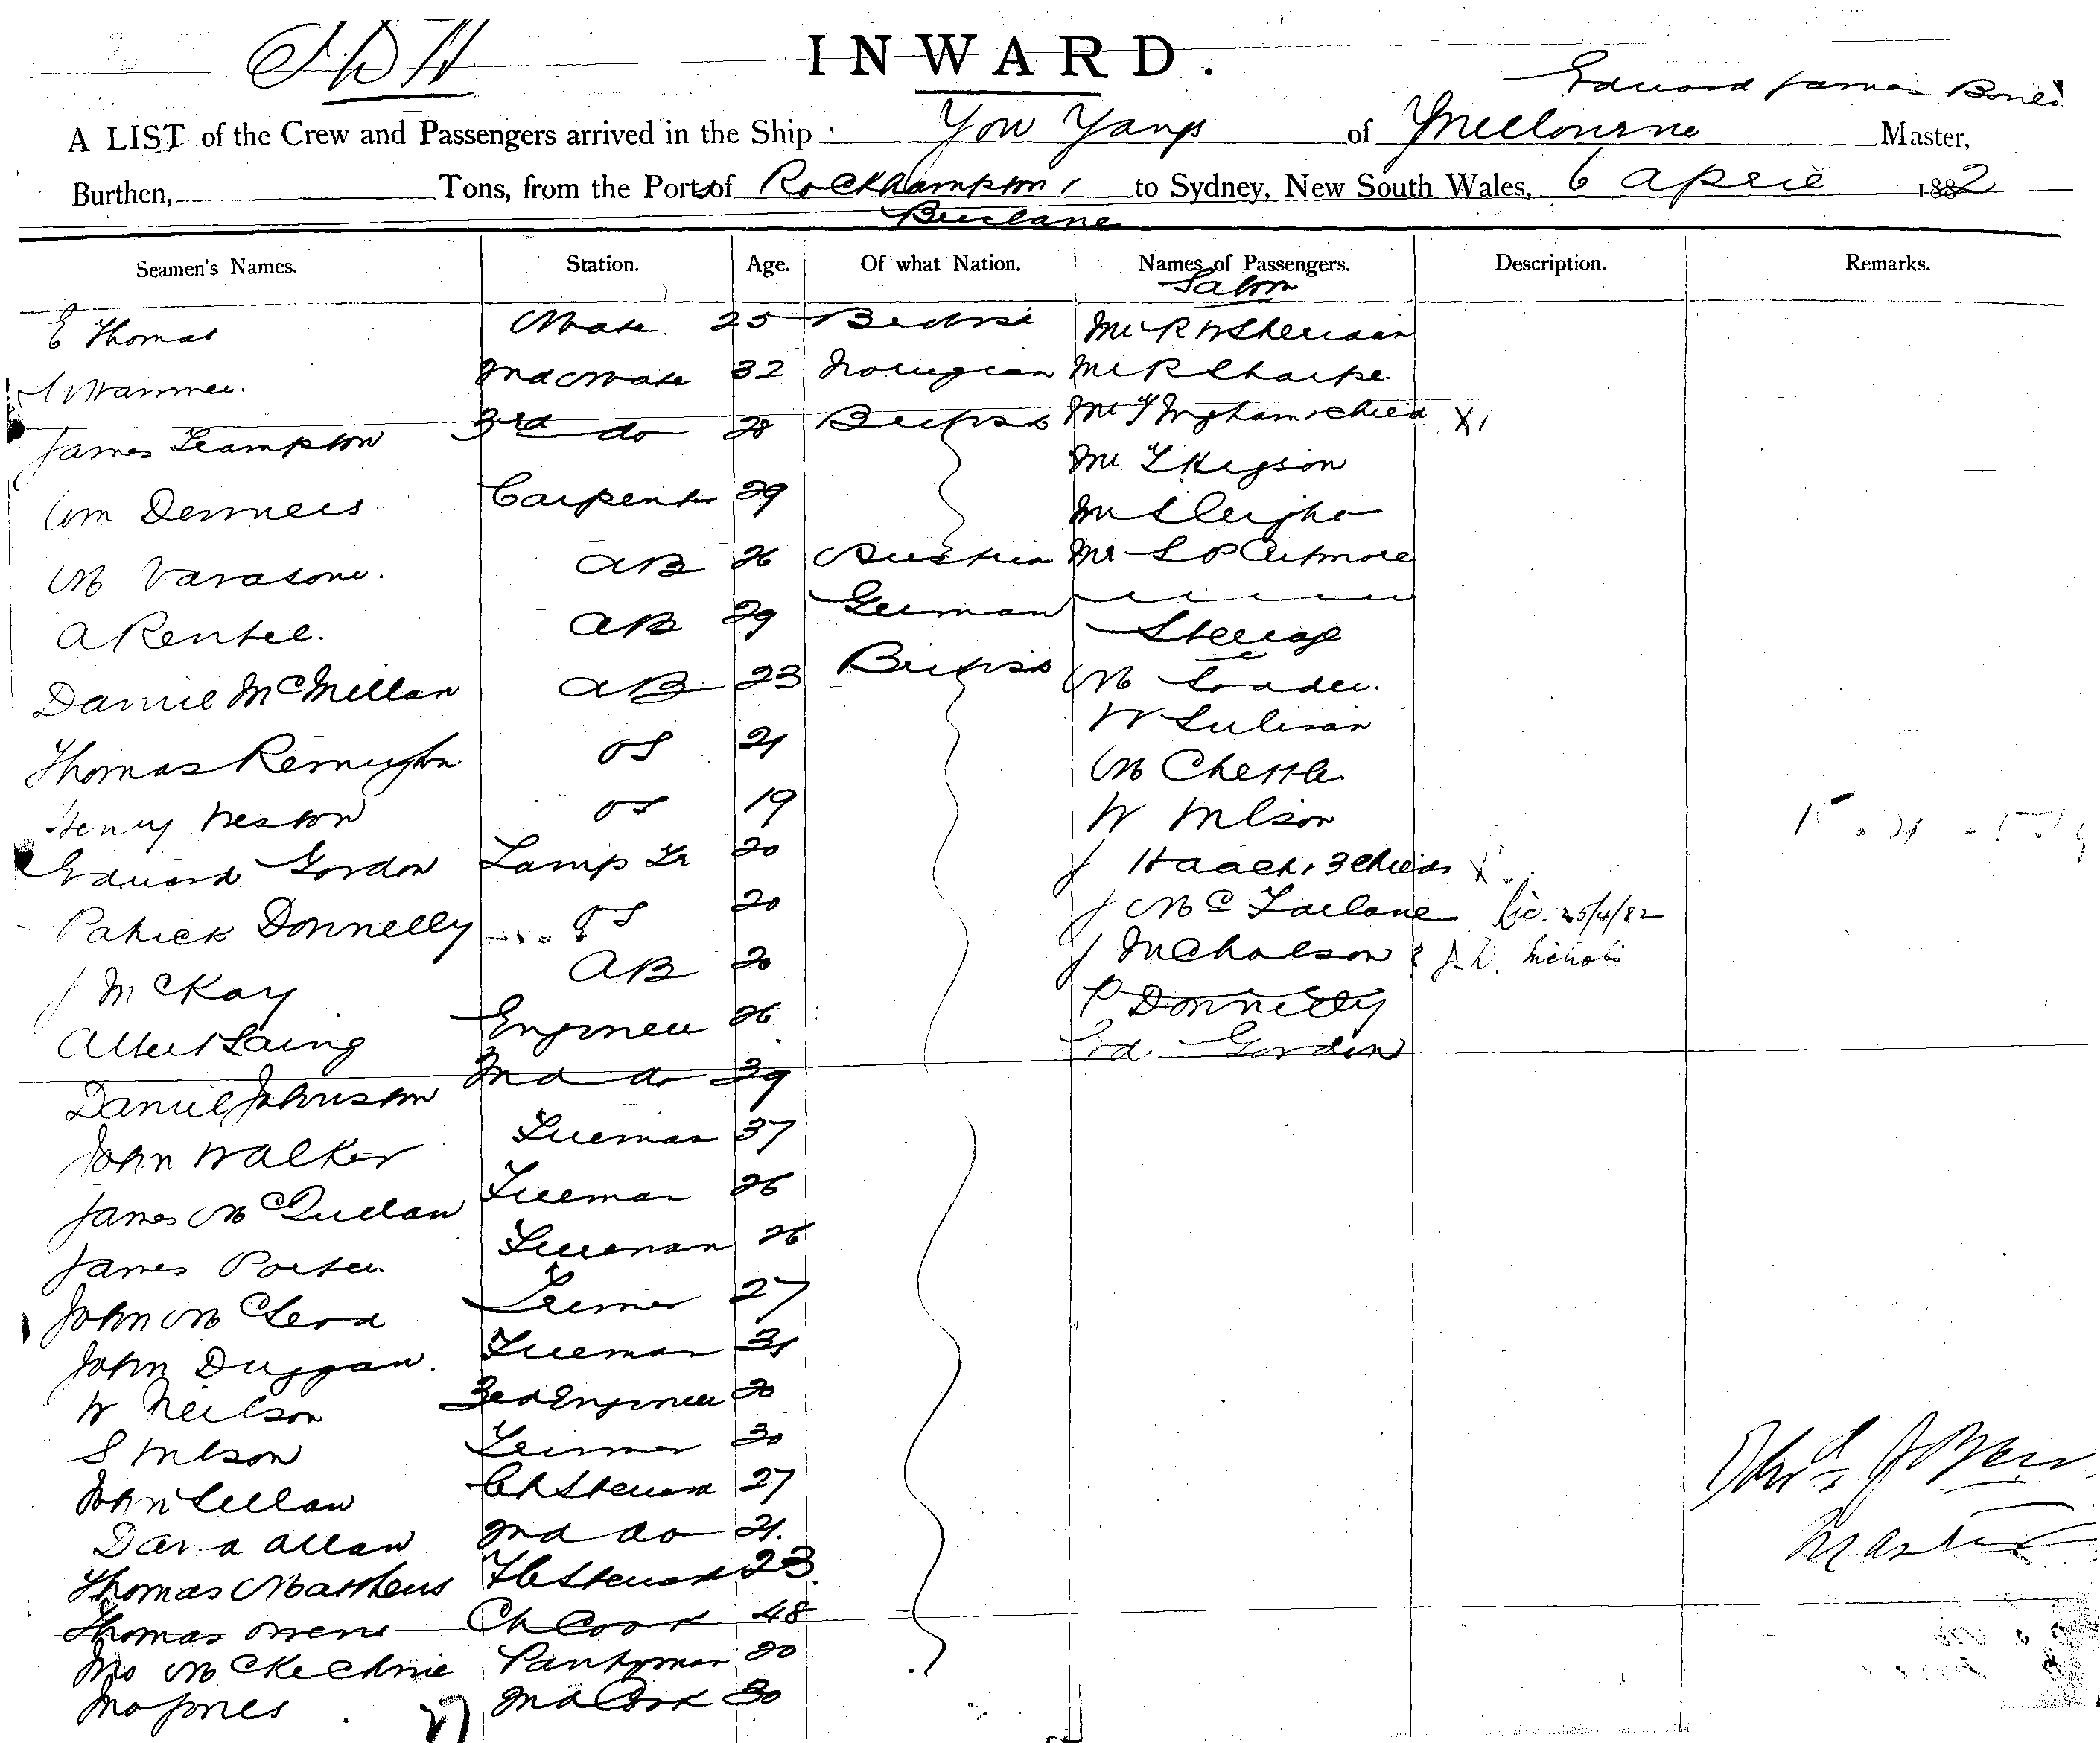 INWARD.
Edward James
A LIST of the Crew and Passengers arrived in the Ship You Yangs of Melbourne Master,
Burthen, Tons, from the Ports of Rockhampton to Sydney, New South Wales, 6 April 1882
Brisbane
Seamen's Names. Station. Age. Of what Nation. Names of Passengers. Description. Remarks.
Saloon
E Thomas Mate 25 British Mr R W Sheridan
2nd Mate 32 Norwegian Mr R Sharpe
James 3rd do 28 British Mr T Ingham & child X1
Mr
Wm Carpenter 29 Mr Sleigh
M AB 26 Austria Mr S P
A Rentel. AB 29 German
Steerage
Daniel McMillan AB 23 British M
Thomas Remington OS 21 W Sulivan
Henry Weston OS 19 M Chettle
W Wilson
Edward Gordon Lamp Tr 20 J Haack & 3 Childs X
Patrick Donnelly OS 20 J McFarlane 25/4/82
J McKay AB 20 J Nicholson & J.
Albert Laing Engineer 26 P Donnelly
Ed. Gordon
Daniel Johnston 2nd do 39
John Walker Fireman 37
James McQuillan Fireman 26
James Porter Fireman 26
John McLeod Trimer 27
John Duggan. Fireman 31
W Neilson 3rd Engineer 20
S Wilson Trimmer 30
John Ch Steward 27
David Allan 2nd do 21.
Thomas Matthews F C Steward 23.
Thomas Owens Ch Cook 48
Jno McKechnie Pantryman 20
Jno Jones 2nd Cook 30
27
Master